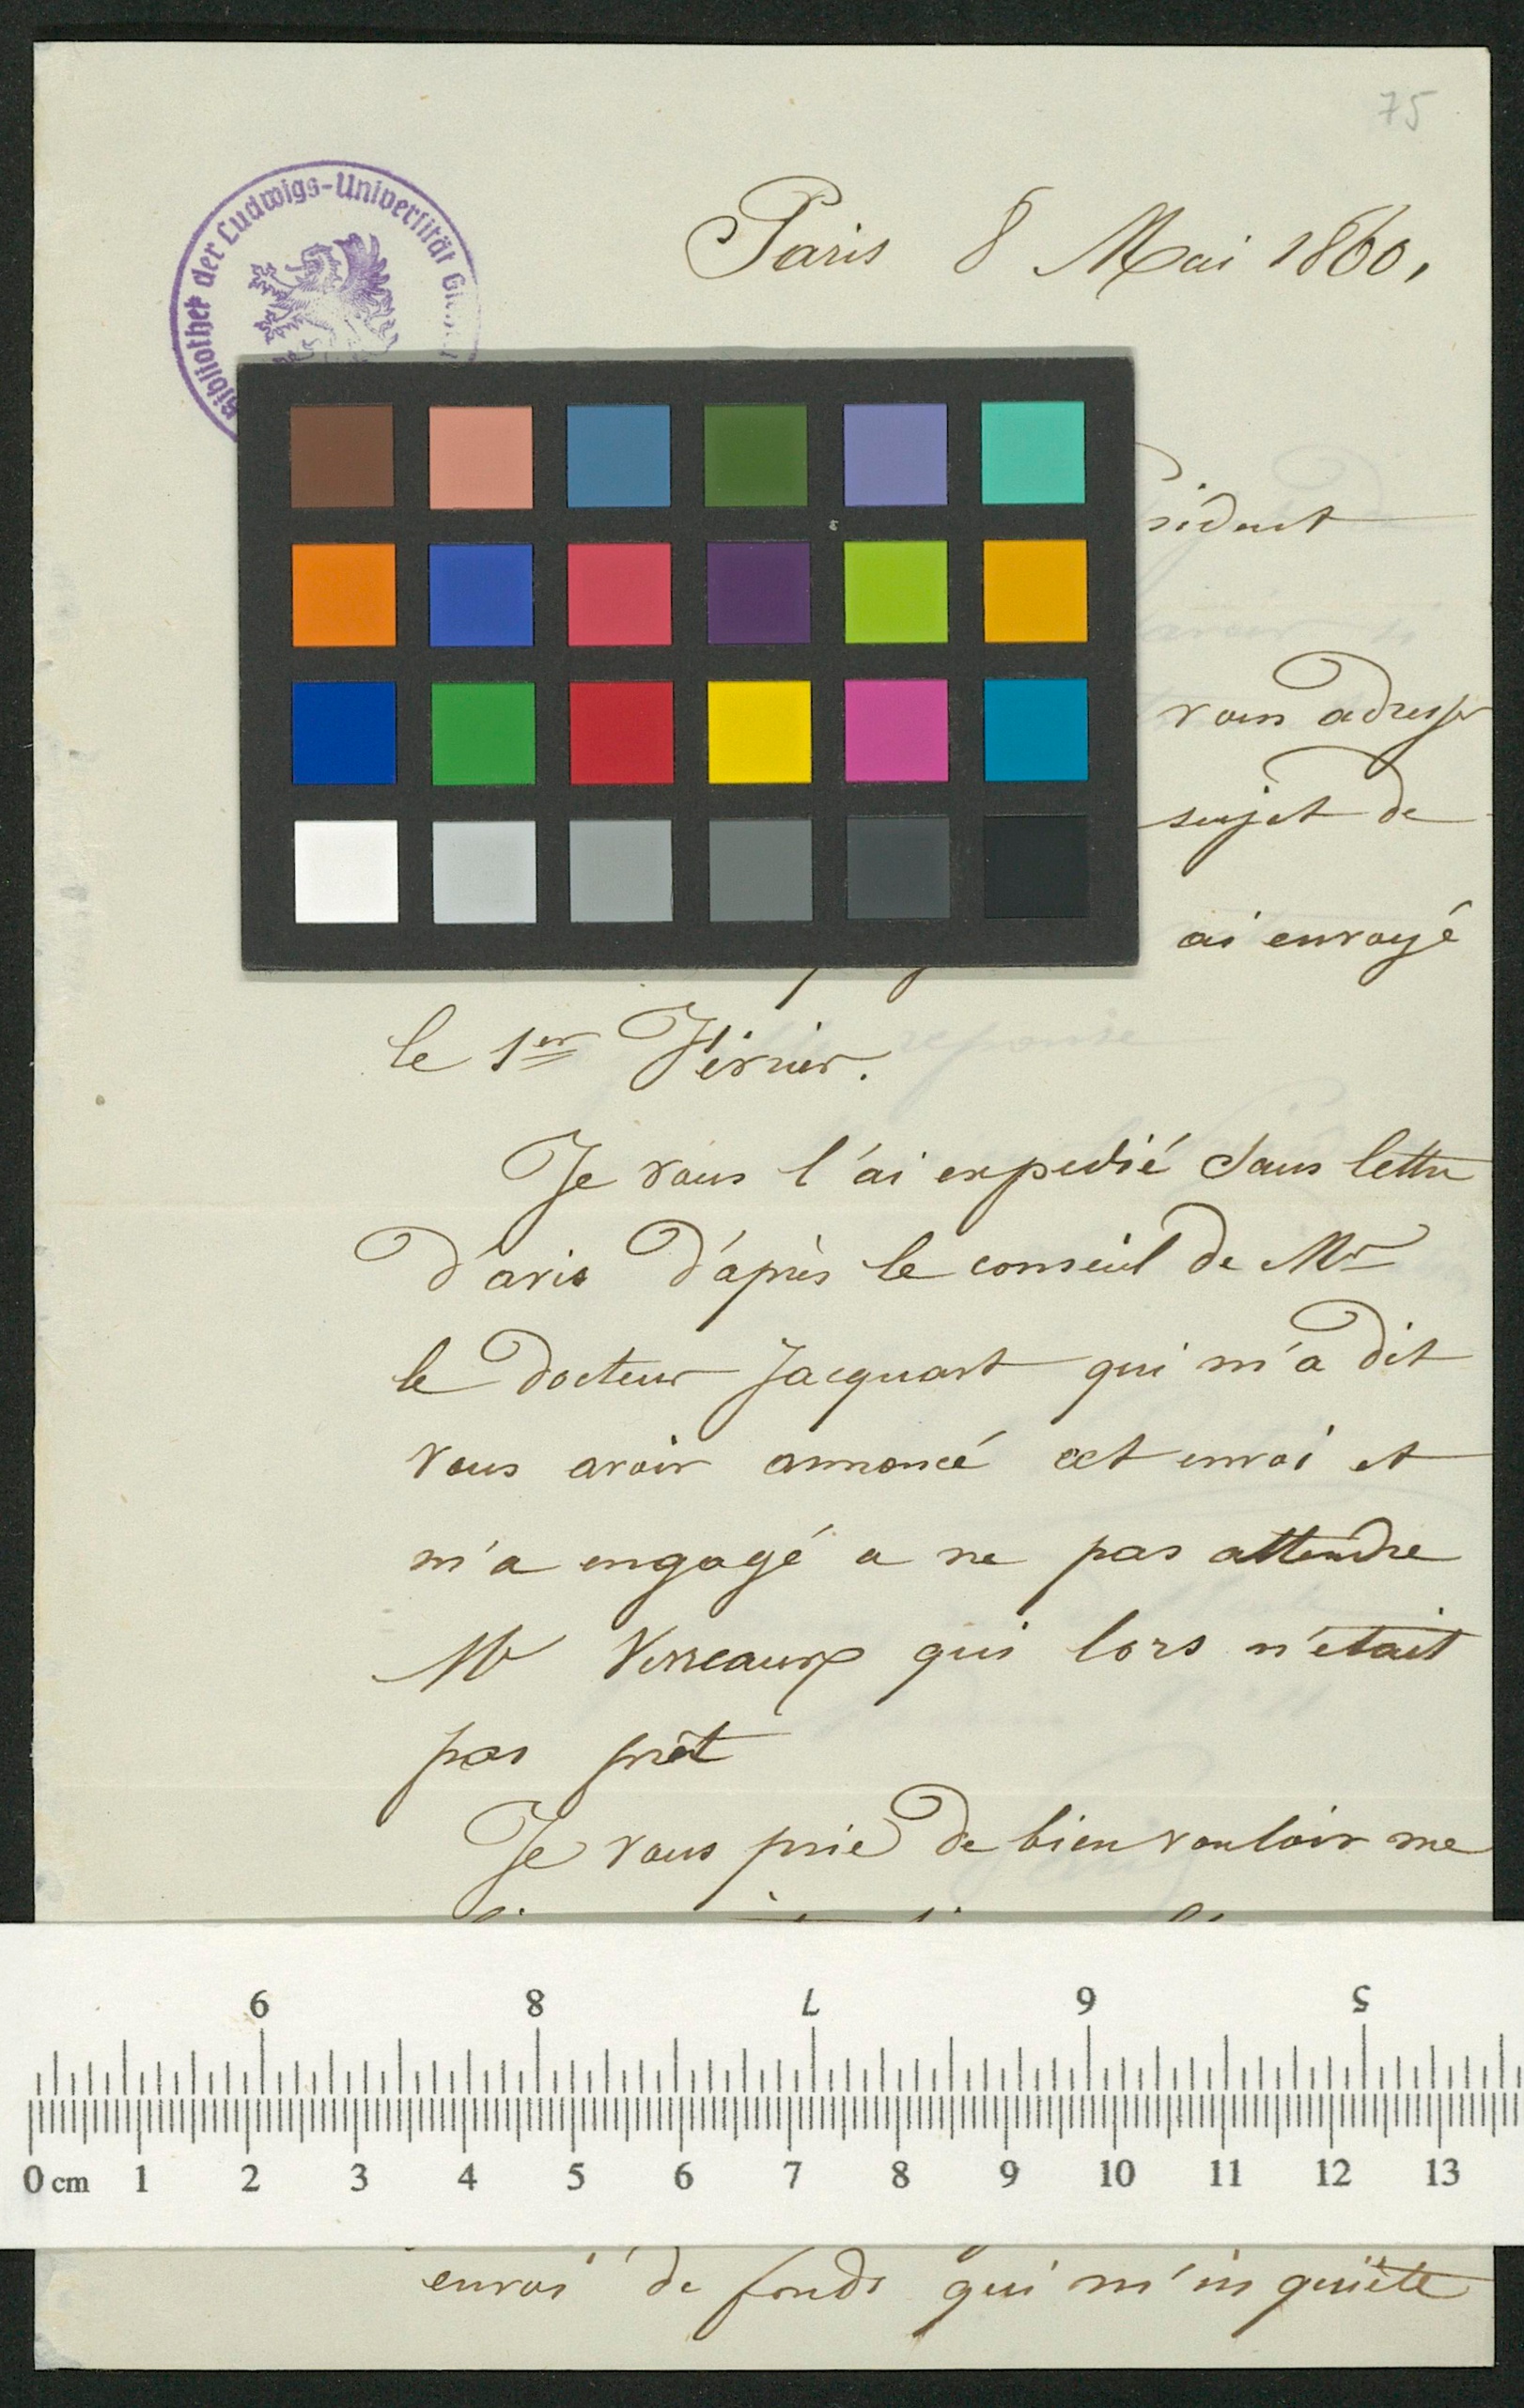 75
Bibliothek der Ludwigs-Universität
Paris 8 Mai 1860,
sident
vous adresser
sujet de
ai envoyé
le 1er Février.
Je vous l'ai expedié sans lettre
d'avis d'après le conseil de Mr
le docteur Jacquart qui m'a dit
vous avoir annoncé cet envoi et
m'a engagé a ne pas attendre
Mr Verreaux qui lors n'était
pas prêt
Je vous prie de bien vouloir me
9 8 7 6 5
0 cm 1 2 3 4 5 6 7 8 9 10 11 12 13
envoi de fonds qui m'inquiète